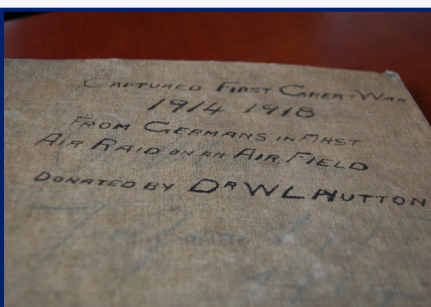 CAPTURED FIRST GREAT WAR
1914 1918
FROM GERMANS IN FIRST
AIR RAID ON AN AIR FIELD
DONATED BY DR W L HUTTON